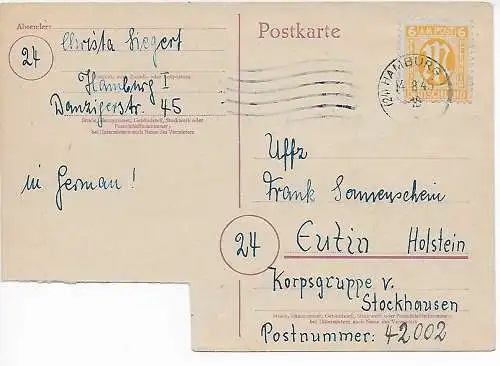 Absender:
Christa Siegert
24
Hamburg 1
Danzigerstr. 45
Straße, Hausnummer, Gebäudeteil, Stockwerk oder
Postschließfachnummer;
bei Untermietern auch Name des Vermieters
in German!
Postkarte
(24) HAMBURG
8.45
6 A.M. POST 6
DEUTSCHLAND
Uffz
Frank Sonnenschein
24
Eutin Holstein
Korpsgruppe v.
Stockhausen
Straße, Hausnummer, Gebäudeteil, Stockwerk oder Postschließfachnummer;
bei Untermietern auch Name des Vermieters
Postnummer: 42002